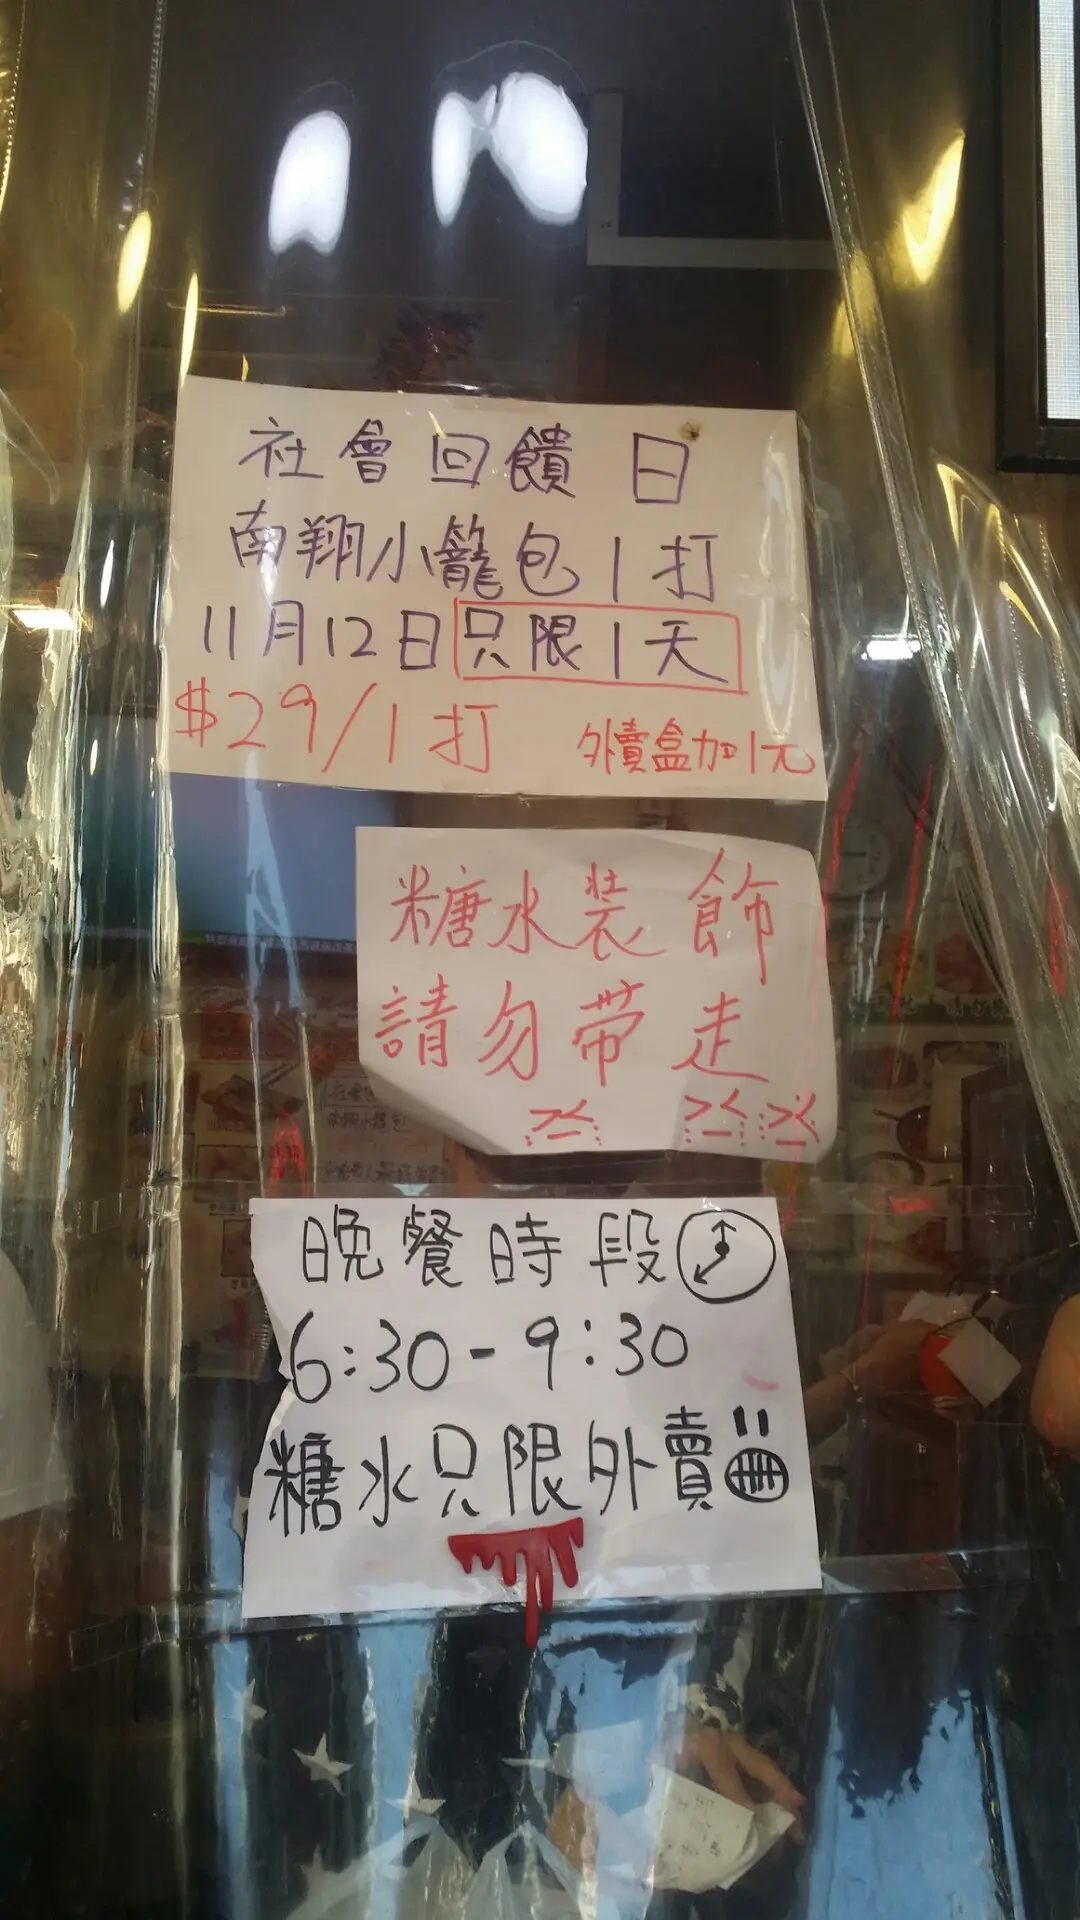 社會回饋日
南翔小籠包1打
11月12日只限1天
$29/1打 外賣盒加1元
糖水裝飾
請勿帶走
晚餐時段
6:30-9:30
糖水只限外賣